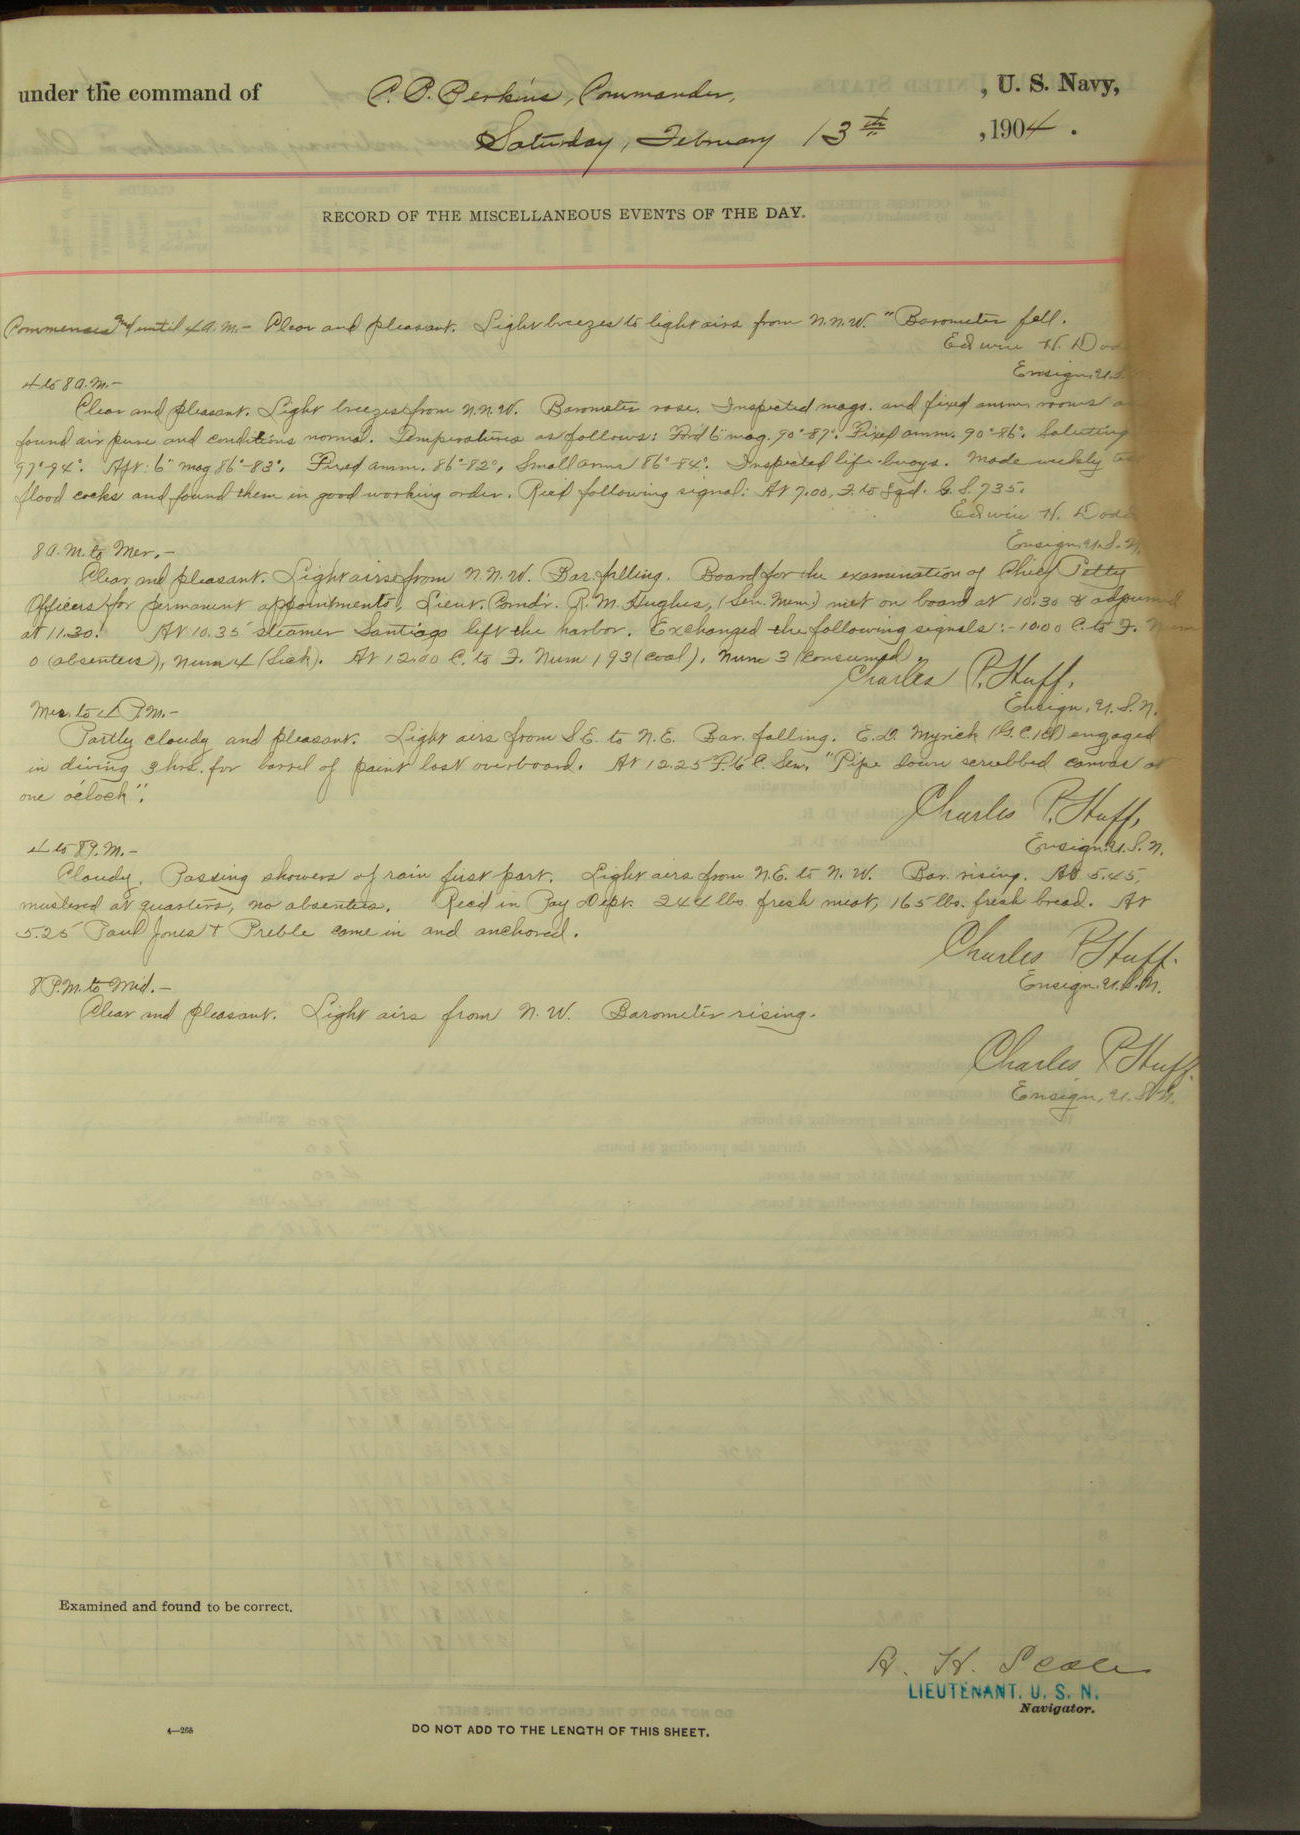 under the command of C. P. Perkins, Commander, , U. S. Navy,
Saturday, February 13th , 1904 .
RECORD OF THE MISCELLANEOUS EVENTS OF THE DAY.
Commences and until 4 a.m.- Clear and pleasant. Light breezes to light airs from N.N.W. Barometer fell.
Edwin H. Dodd
Ensign, U.S.
4 to 8 A.M.-
Clear and pleasant. Light breezes from N.N.W. Barometer rose. Inspected mags. and fixed ammn rooms
found air pure and conditions normal. Temperatures as follows: For'd 6" mag. 90°-87°. Fixed amm. 90°-86°. Saluting
97°-94°. Aft: 6" mag 86°-83°. Fixed amm. 86°-82°, Small arms 86°-84°. Inspected life-buoys. Made weekly
flood cocks and found them in good working order. Rec'd following signal: At 7.00, F. to Sqd. G.S. 735.
Edwin H. Dodd
Ensign, U.S.N.
8 A.M. to Mer.-
Clear and pleasant. Light airs from N.N.W. Bar. falling. Board for the examination of Chief Petty
Officers for permanent appointments, Lieut. Comdr. R. M. Hughes, (Sen. Mem.) met on board at 10.30 & adjourned
at 11.30. At 10.35 steamer Santiago left the harbor. Exchanged the following signals:- 10.00 C. to F. Num
0 (absentees), Num 4 (Sick). At 12.00 C. to F. Num 193 (coal), Num 3 (consumed).
Charles P. Huff,
Ensign, U.S.N.
Mer. to 4 P.M.-
Partly cloudy and pleasant. Light airs from S.E. to N.E. Bar. falling. E. D. Myrick (G.C. 1 Cl) engaged
in diving 3 hrs. for barrel of paint lost overboard. At 12.25 F. to C. Sem. "Pipe down scrubbed canvas at
one o'clock".
Charles P. Huff,
Ensign, U.S.N.
4 to 8 P.M.-
Cloudy. Passing showers of rain first part. Light airs from N.E. to N.W. Bar. rising. At 5.45
mustered at quarters, no absentees. Rec'd in Pay Dept. 244 lbs fresh meat, 165 lbs. fresh bread. At
5.25 Paul Jones & Preble came in and anchored.
Charles P. Huff.
Ensign, U.S.N.
8 P.M. to Mid.-
Clear and pleasant. Light airs from N.W. Barometer rising.
Charles P. Huff.
Ensign, U.S.N.
Examined and found to be correct.
H. Scales
LIEUTENANT, U. S. N.
Navigator.
4—268
DO NOT ADD TO THE LENGTH OF THIS SHEET.